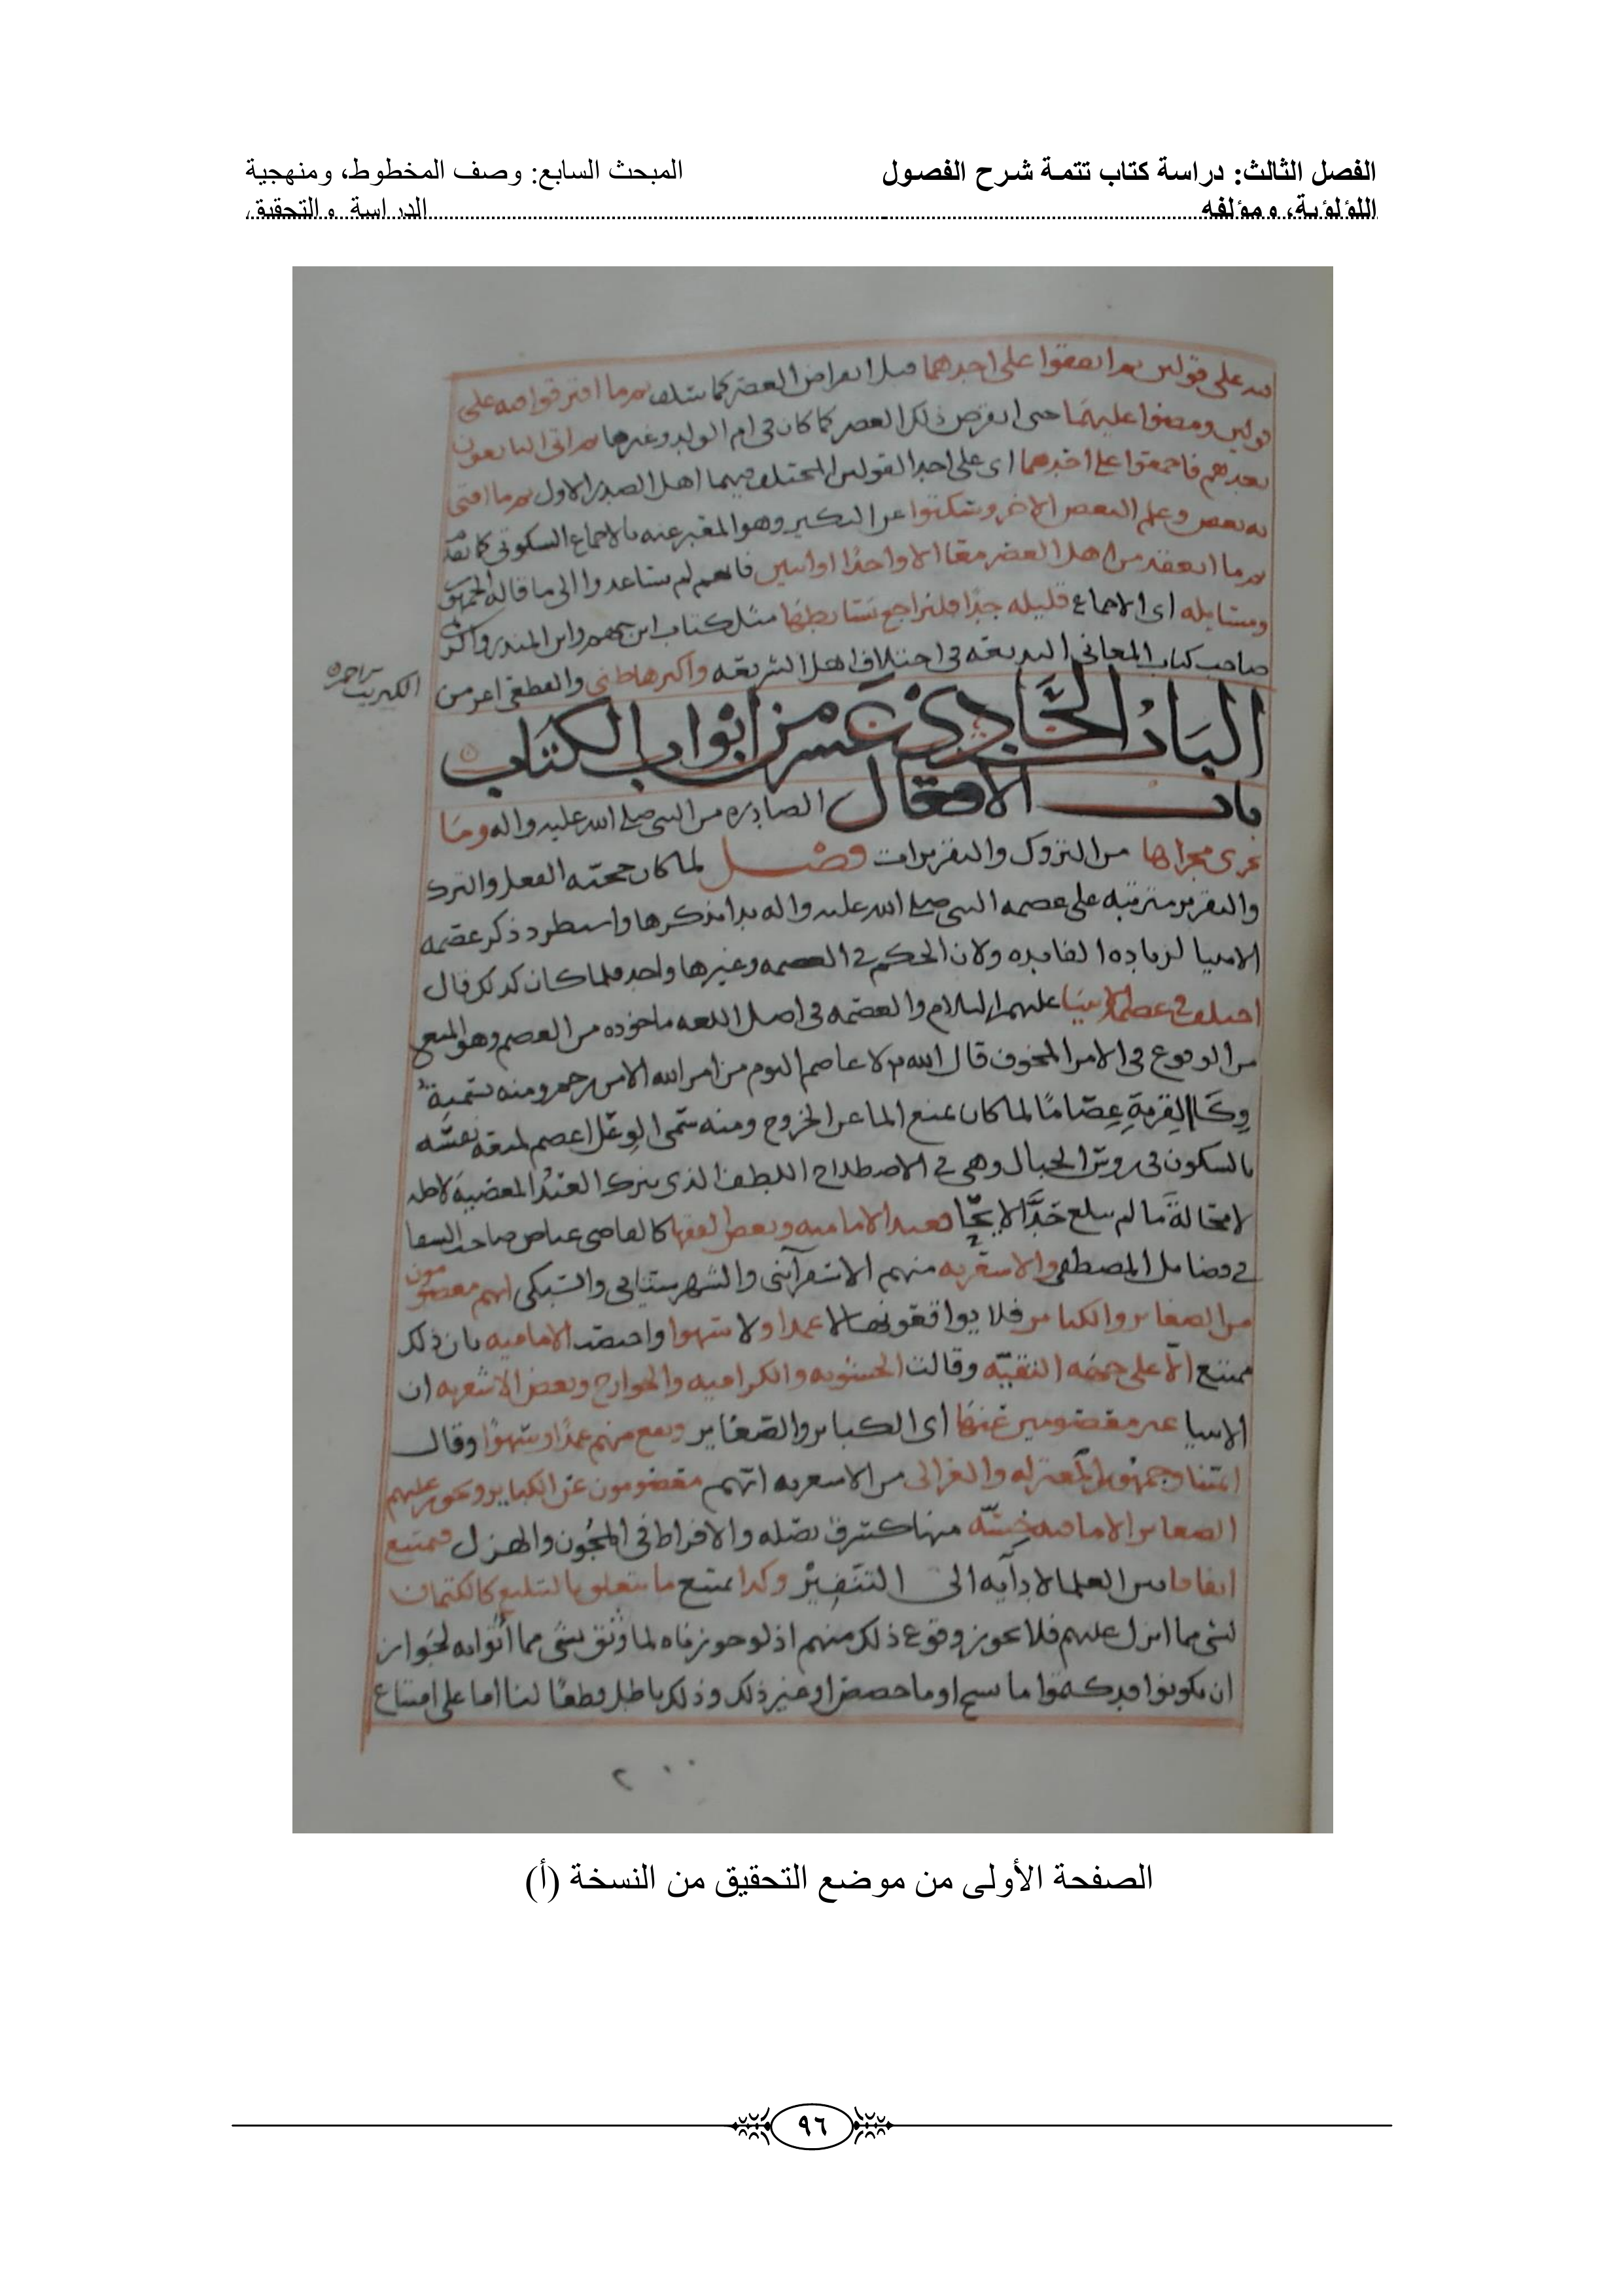 الفصل الثالث: دراسة كتاب تتمة شرح الفصول
اللؤلؤية، ومؤلفه
المبحث السابع: وصف المخطوط، ومنهجية
الدراسة والتحقيق.
فيه على قولين ثم اتفقوا على احدهما قبل انقراض العصر كما سلف ثم ما افترقوا فيه على
قولين ومضوا عليهما حتى انقرض ذلك العصر كما كان في ام الولد وغيرها ثم اتى التابعون
بعدهم فاجمعوا على احدهما اى على احد القولين المختلف فيهما اهل الصدر الاول ثم ما افتى
به بعض وعلم البعض الاخر وسكتوا عن النكير وهو المعبر عنه بالاجماع السكوتي كما تقدم
ثم ما انعقد من اهل العصر معا الا واحدًا او اثنين فانهم لم يساعدوا الى ما قاله الجمهور
ومسايله اى الاجماع قليله جدًا فلتراجع بسايطها مثل كتاب ابن جمهور وابن المنذر واكثر
صاحب كتاب المعاني البديعه في اختلاف اهل الشريعه واكثرها ظني والقطعي اعز من
الكبريت الاحمر
الباب الحادي عشر من ابواب الكتاب
باب الافعال الصادره من النبي صلى الله عليه واله وما
يجرى مجراها من التروك والتقريرات فصل لما كان حجته الفعل والترك
والتقرير مترتبه على عصمه النبي صلى الله عليه واله بدا بذكرها واستطرد ذكر عصمه
الانبيا لزياده الفايده ولان الحكم في العصمه وغيرها واحد فلما كان كذلك قال
اختلف في عصمة الانبيا عليهم السلام والعصمه في اصل اللغه ماخوذه من العصم وهو المنع
من الوقوع في الامر المخوف قال الله تعالى لا عاصم اليوم من امر الله الا من رحم ومنه تسمية
وكا القربة عصامًا لما كان يمنع الما عن الخروج ومنه سمى الوعل اعصم لمنعه نفسه
بالسكون في روس الجبال وهي في الاصطلاح اللطف الذى يترك العبد المعصية لاجله
لا محالة ما لم يبلغ حدَّ الالجا فعند الاماميه وبعض الفقها كالقاضي عياض صاحب الشفا
في فضايل المصطفى والاشعريه منهم الاسفرآيني والشهرستاني والسبكي انهم معصومون
من الصغاير والكباير فلا يواقعونها لا عمدا ولا سهوا واختصت الاماميه بان ذلك
ممتنع الا على جهه التقيه وقالت الحشويه والكراميه والخوارج وبعض الاشعريه ان
الانبيا غير معصومين عنها اى الكباير والصغاير وتقع منهم عمدًا وسهوًا وقال
ائمتنا وجمهور المعتزله والغزالى من الاشعريه انهم معصومون عن الكباير ويجوز عليهم
الصغاير الا ما فيه خسّه منها كسرقة بصله والافراط في المجون والهزل فممتنع
اتفاقا بين العلما لادآيه الى التنفير وكذا يمتنع ما يتعلق بالتبليغ كالكتمان
لشي مما انزل عليهم فلا يجوز وقوع ذلك منهم اذ لو جوزناه لما وثق بشي مما أتوا به لجواز
ان يكونوا قد كتموا ما نسخ او ما خصص او غير ذلك وذلك باطل قطعًا لنا اما على امتناع
٢٠٠
الصفحة الأولى من موضع التحقيق من النسخة (أ)
٩٦